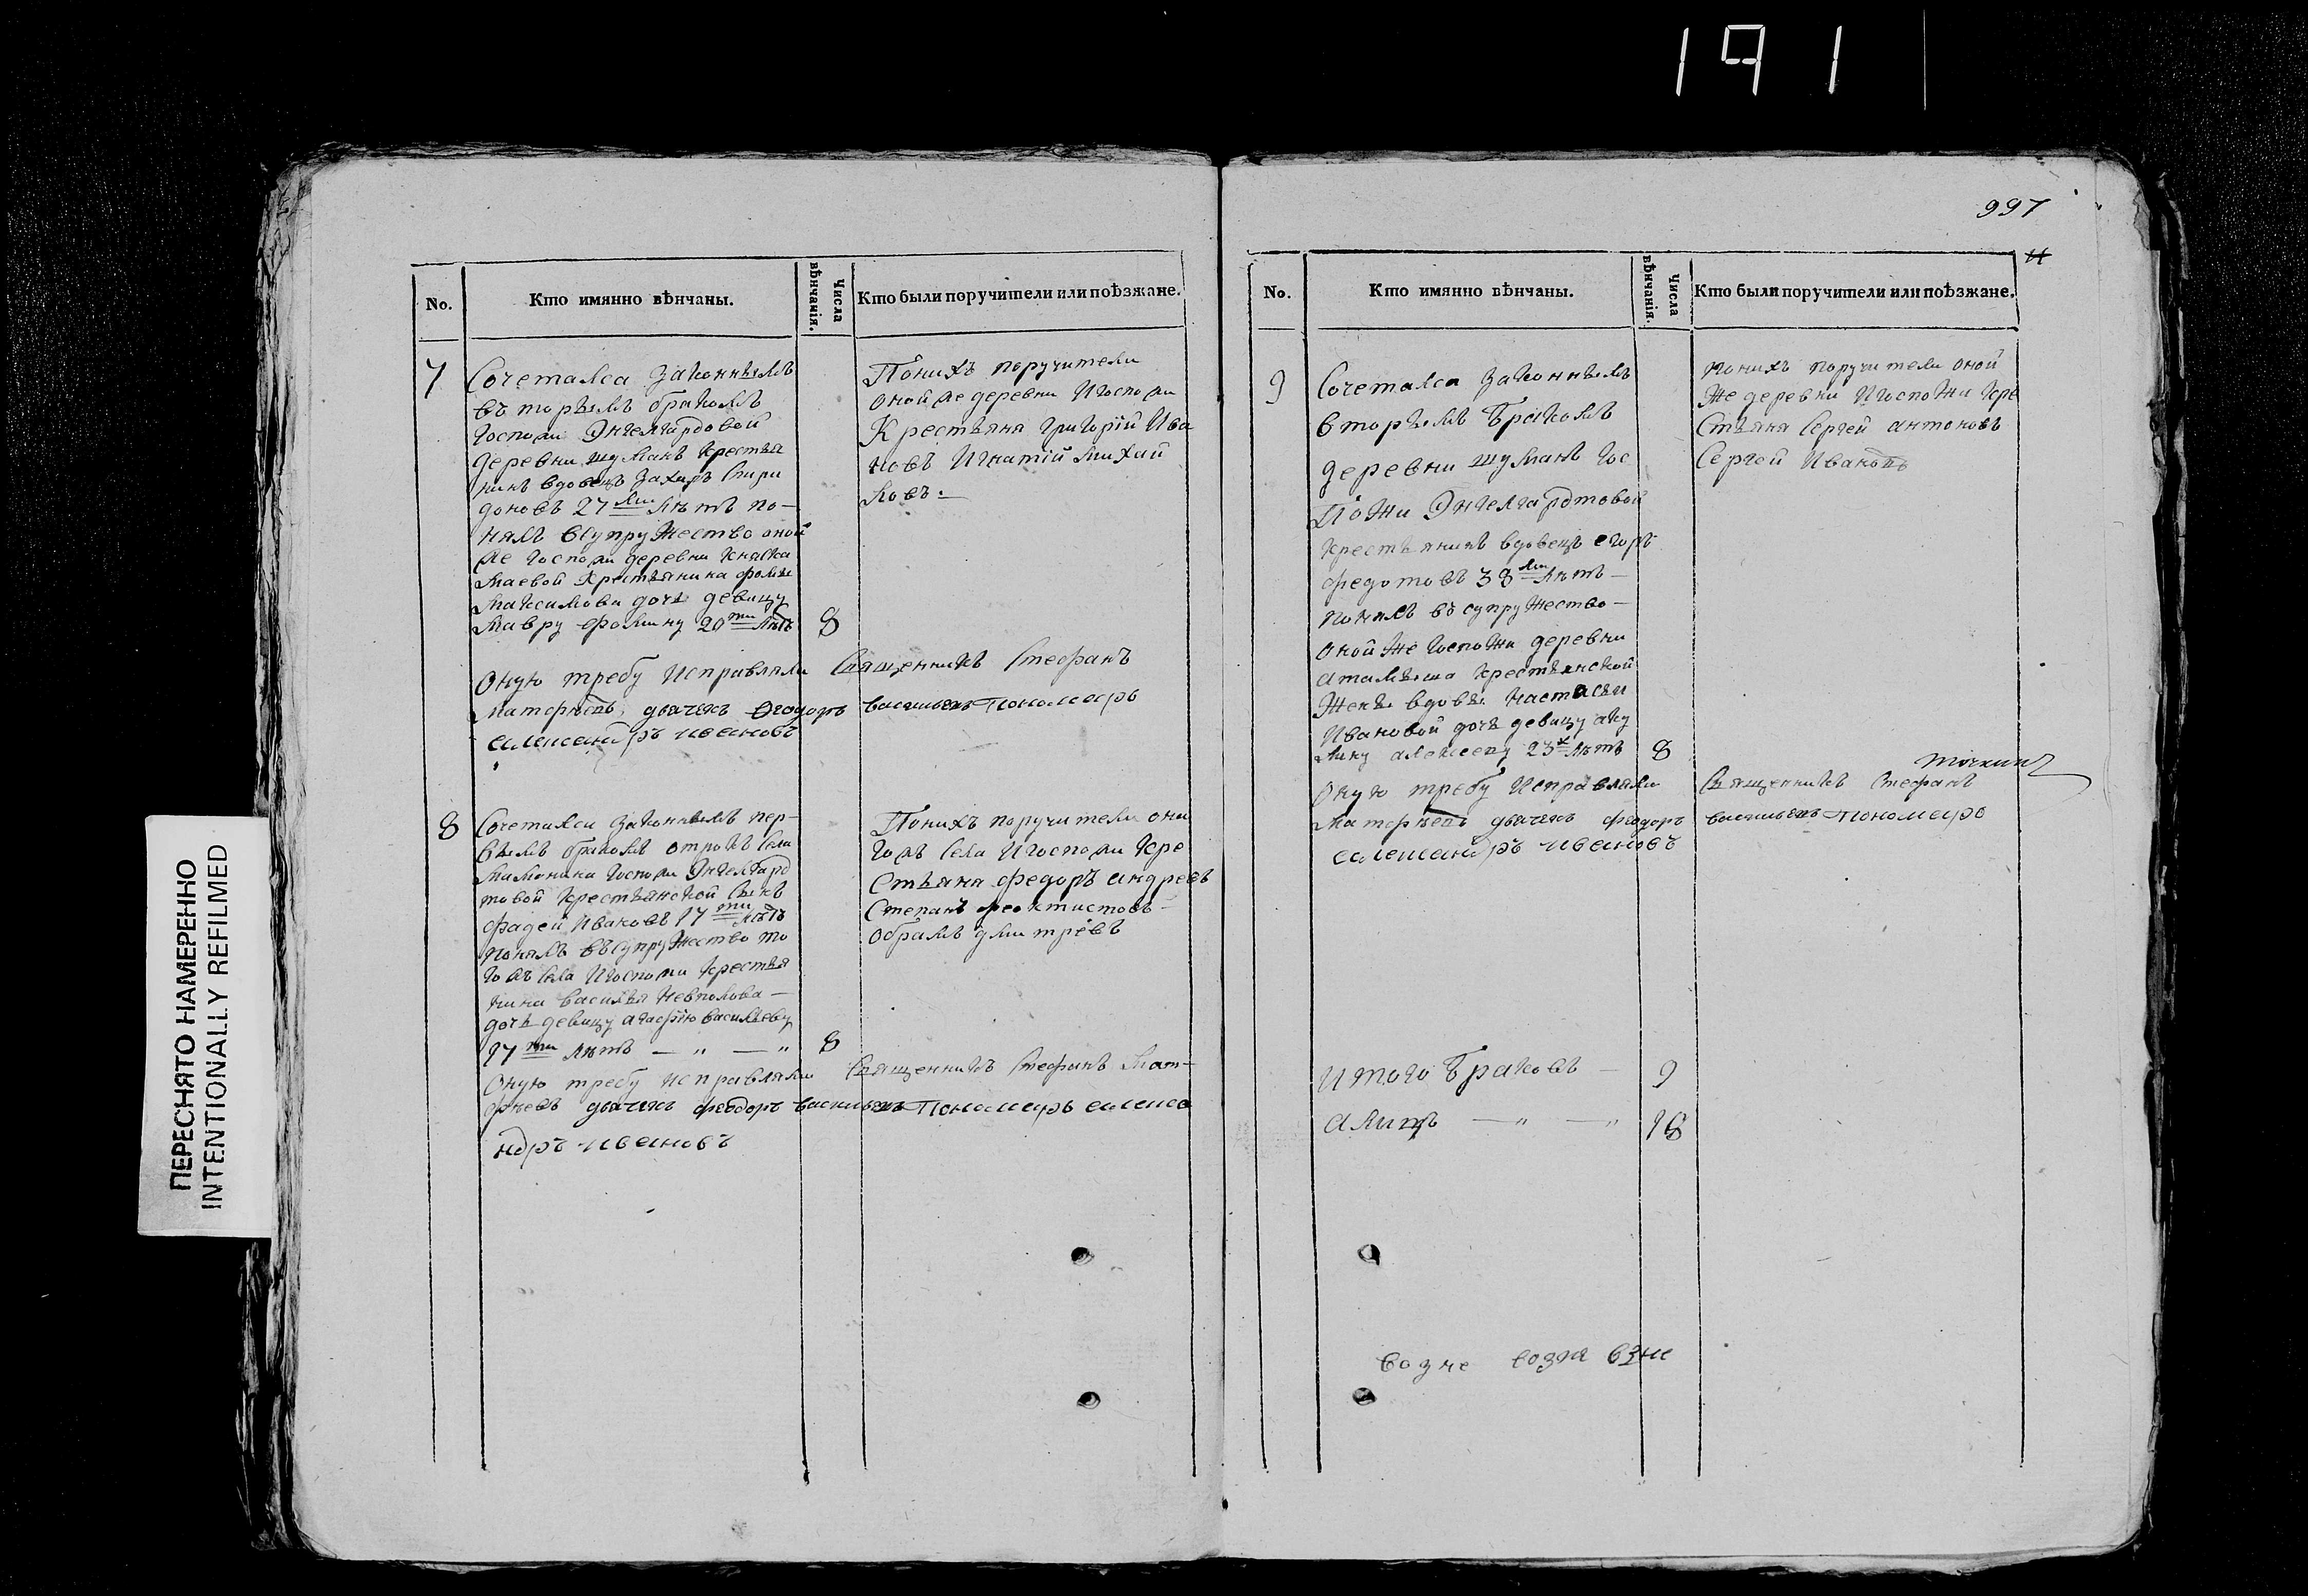 191
997
No.
Кто имянно вѣнчаны.
Числа вѣнчанія.
Кто были поручители или поѣзжане.
7
Сочетался законнымъ
въторымъ бракомъ
госпожи Энгелгардовой
деревни шуманъ крестья
нинъ вдовецъ Захаръ Спири
доновъ 27ми лѣтъ по-
нялъ всупружество оной
же госпожи деревни
крестьянина фомы
максимова дочь девицу
мавру фомину 20ти лѣтъ
8
Понихъ поручители
оной же деревни Игоспожи
Крестьяна григорій Ива
новъ Игнатій михай
ловъ.
Оную требу Исправляли Священникъ Стефанъ
матфѣевъ, дьячекъ Феодоръ васильевъ Пономарь
александръ ивановъ
8
Сочеталси законнымъ пер-
вымъ бракомъ отрокъ села
мамонина госпожи Энгелгард
товой крестьянской сынъ
фадей Ивановъ 17ти лѣтъ
понялъ въсупружество то
гожъ села Игоспожи крестья
нина василья
дочь девицу агафію васильеву
17ти лѣтъ — „ — „
8
Понихъ поручители она
гожъ села Игоспожи кре
стьяна федоръ андреевъ
Степанъ феоктистовъ
обрамъ дмитревъ
Оную требу исправляли Священникъ Стефанъ Мат-
фѣевъ дьячекъ феодоръ васильевъ Пономарь алекса
ндръ ивановъ
No.
Кто имянно вѣнчаны.
Числа вѣнчанія.
Кто были поручители или поѣзжане.
9
Сочетался законнымъ
вторымъ Бракомъ
деревни шуманъ гос
пожи Энгелгардтовой
крестьянинъ вдовецъ егоръ
федотовъ 38ми лѣтъ —
понялъ въ супружество —
оной же госпожи деревни
крестьянской
жены вдовы настасьи
Ивановой дочь девицу аку
лину алексееву 23х лѣтъ
8
понихъ поручители оной
же деревни Игоспожи кре
стьяна Сергей антоновъ
Сергей Ивановъ
Оную требу Исправляли Священникъ Стефанъ
матфѣевъ дьячекъ феодоръ васильевъ пономарь
александръ ивановъ
итого Браковъ — 9
алицъ — „ — „ 18
возне возня взне
ПЕРЕСНЯТО НАМЕРЕННО
INTENTIONALLY REFILMED